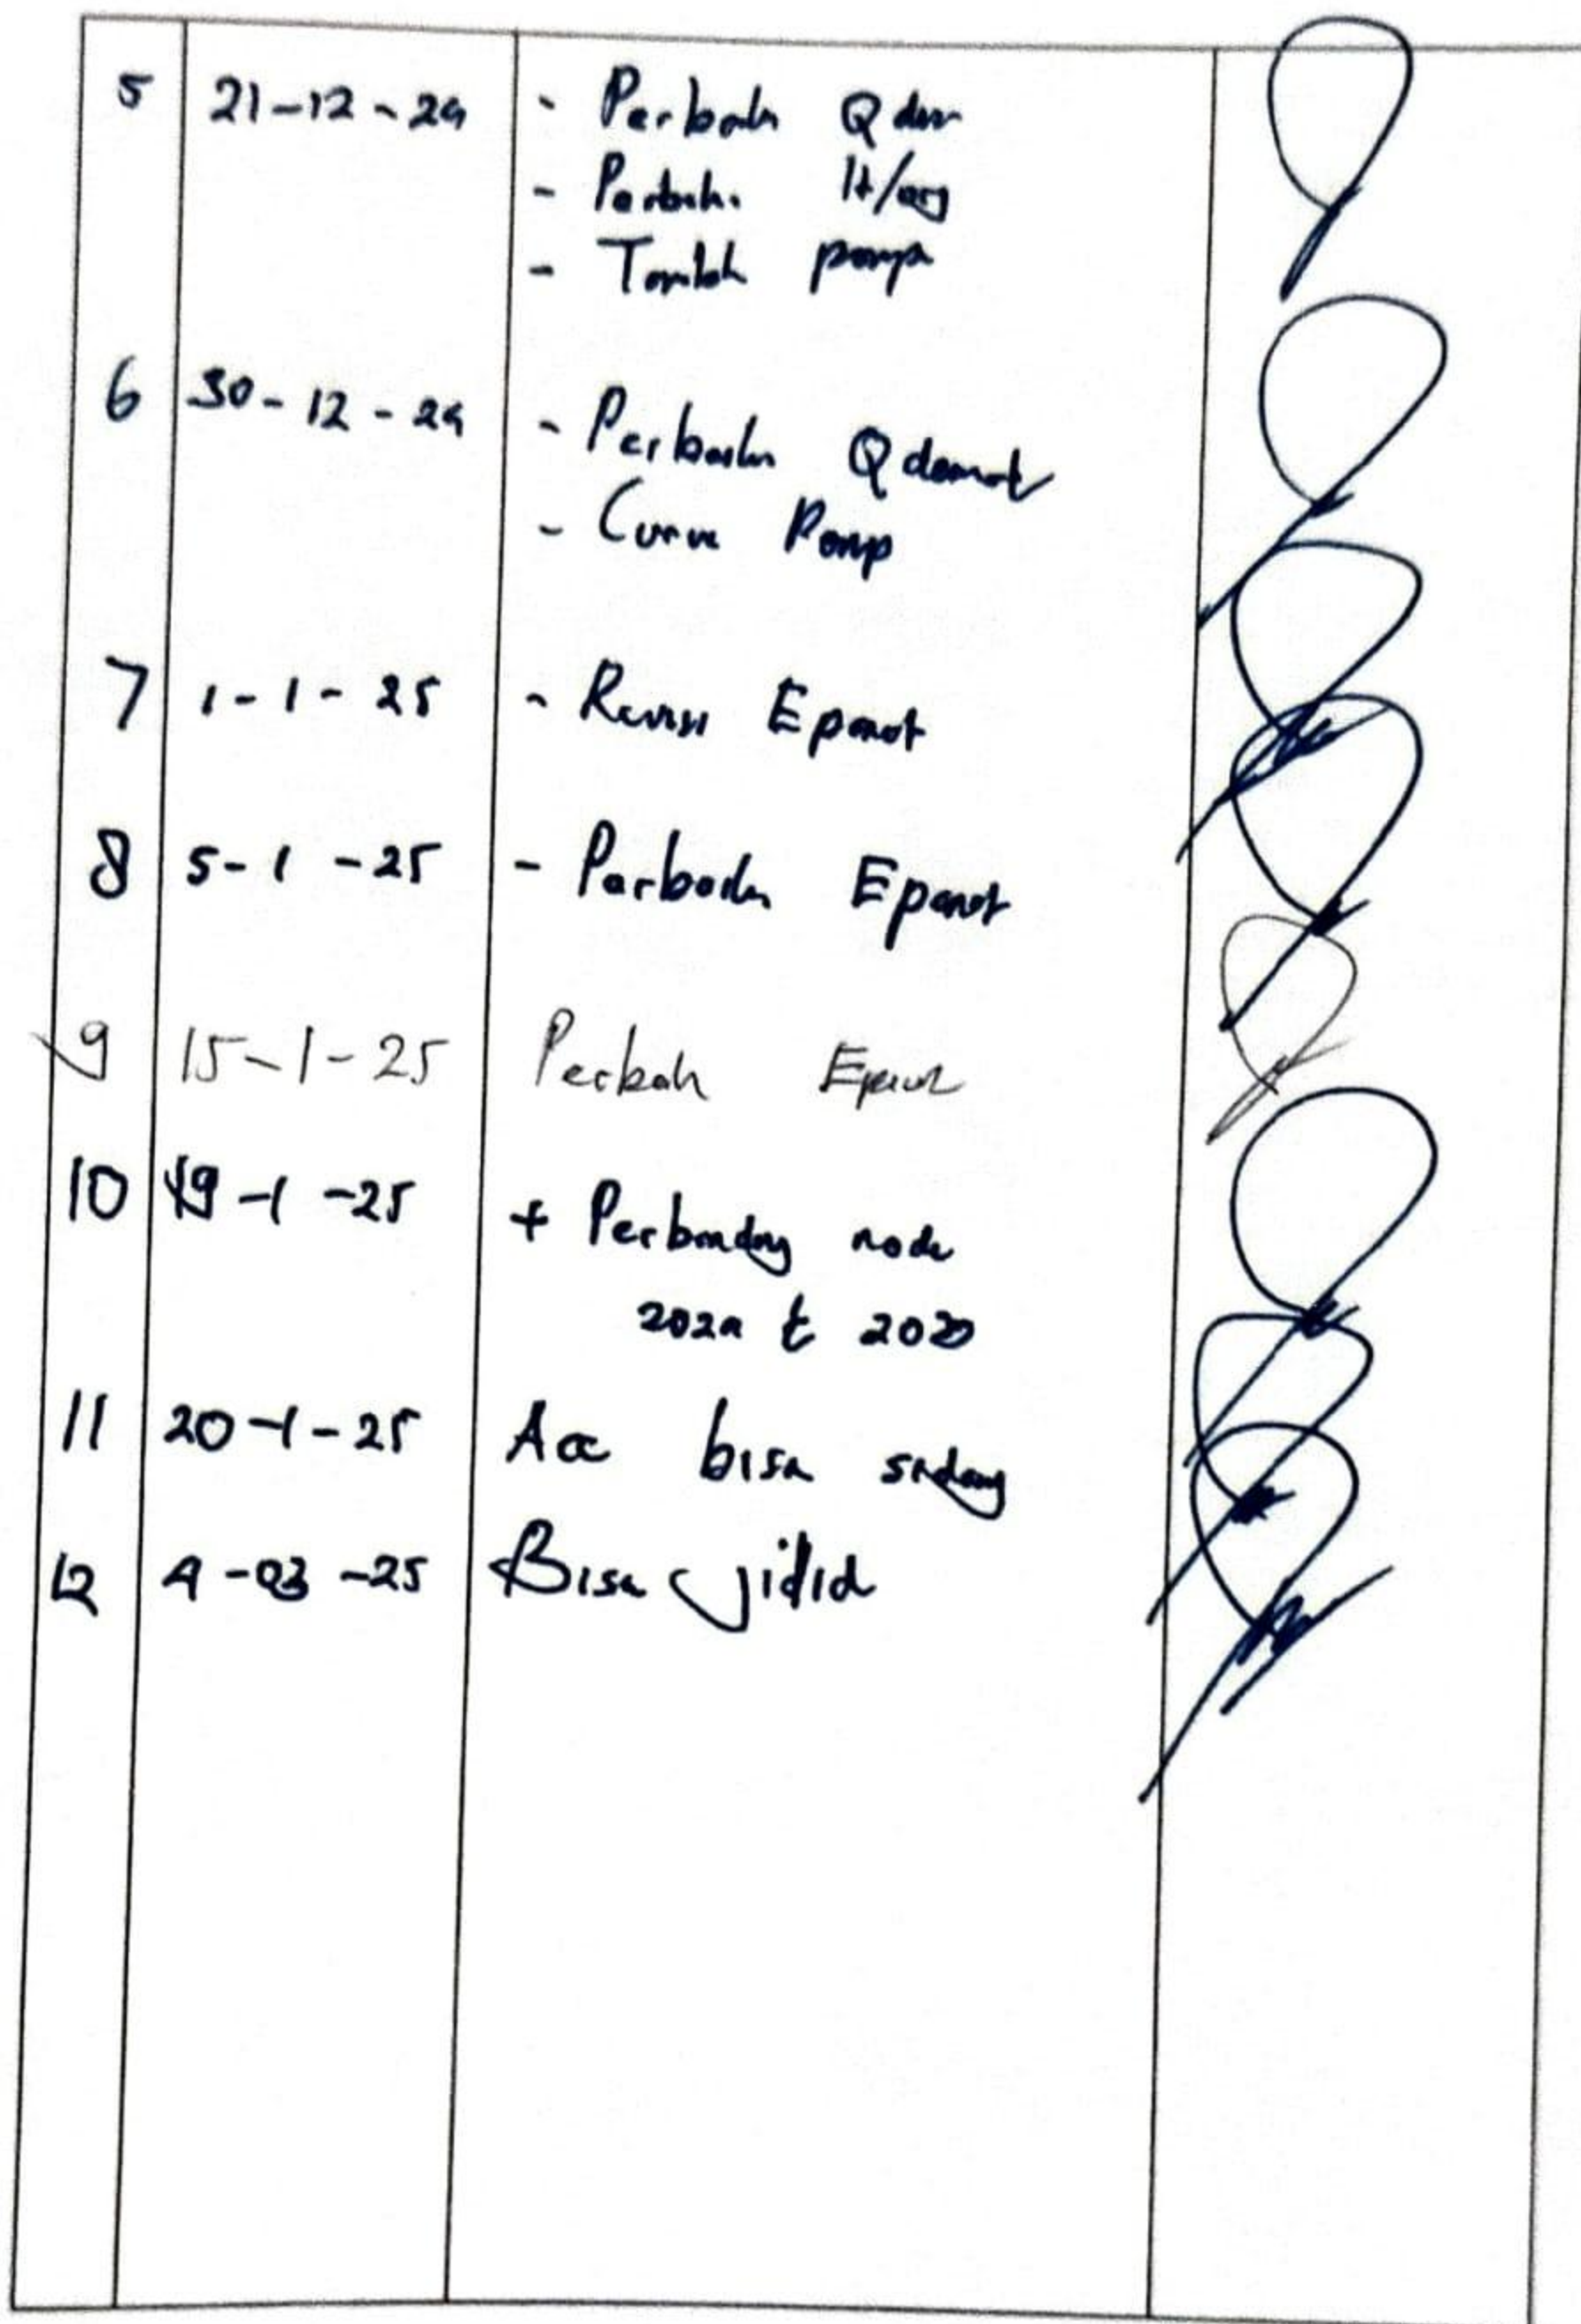 5 21-12-24 - Perbaiki Q dem
- Perbaiki lt/org
- Tambah pompa
6 30-12-24 - Perbaiki Q demand
- Curve Pomp
7 1-1-25 - Revisi Epanet
8 5-1-25 - Perbaiki Epanet
9 15-1-25 Perbaiki Epanet
10 19-1-25 + Perbandingan node
2024 & 2030
11 20-1-25 Acc bisa sidang
12 4-03-25 Bisa jilid